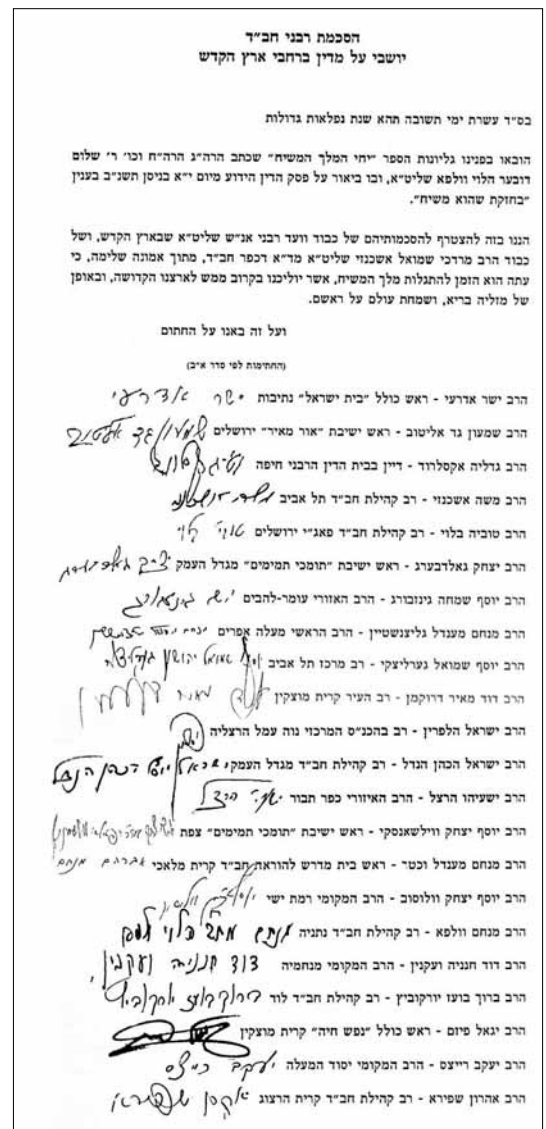 הסכמת רבני חב"ד
יושבי על מדין ברחבי ארץ הקדש
בס"ד עשרת ימי תשובה תהא שנת נפלאות גדולות
הובאו בפנינו גליונות הספר "יחי המלך המשיח" שכתב הרה"ג הרה"ח וכו' ר' שלום
דובער הלוי וולפא שליט"א, ובו ביאור על פסק הדין הידוע מיום י"א בניסן תשנ"ב בענין
"בחזקת שהוא משיח".
הננו בזה להצטרף להסכמותיהם של כבוד וועד רבני אנ"ש שליט"א שבארץ הקדש, ושל
כבוד הרב מרדכי שמואל אשכנזי שליט"א מד"א דכפר חב"ד, מתוך אמונה שלימה, כי
עתה הוא הזמן להתגלות מלך המשיח, אשר יוליכנו בקרוב ממש לארצנו הקדושה, ובאופן
של מזליה בריא, ושמחת עולם על ראשם.
ועל זה באנו על החתום
(החתימות לפי סדר א"ב)
הרב ישר אדרעי - ראש כולל "בית ישראל" נתיבות ישר אדרעי
הרב שמעון גד אליטוב - ראש ישיבת "אור מאיר" ירושלים שמעון גד אליטוב
הרב גדליה אקסלרוד - דיין בבית הדין הרבני חיפה
הרב משה אשכנזי - רב קהילת חב"ד תל אביב משה אשכנזי
הרב טוביה בלוי - רב קהילת חב"ד פאג"י ירושלים טובי' בלוי
הרב יצחק גאלדבערג - ראש ישיבת "תומכי תמימים" מגדל העמק יצחק גאלדבערג
הרב יוסף שמחה גינזבורג - הרב האזורי עומר-להבים
הרב מנחם מענדל גליצנשטיין - הרב הראשי מעלה אפרים
הרב יוסף שמואל גערליצקי - רב מרכז תל אביב
הרב דוד מאיר דרוקמן - רב העיר קרית מוצקין דוד מאיר דרוקמן
הרב ישראל הלפרין - רב בהכנ"ס המרכזי נוה עמל הרצליה
הרב ישראל הכהן הנדל - רב קהילת חב"ד מגדל העמק ישראל יוסף הכהן הנדל
הרב ישעיהו הרצל - הרב האיזורי כפר תבור ישעי' הרצל
הרב יוסף יצחק ווילשאנסקי - ראש ישיבת "תומכי תמימים" צפת
הרב מנחם מענדל וכטר - ראש בית מדרש להוראת חב"ד קרית מלאכי אברהם מנחם
הרב יוסף יצחק וולוסוב - הרב המקומי רמת ישי
הרב מנחם וולפא - רב קהילת חב"ד נתניה מנחם הלוי וולפא
הרב דוד חנניה ועקנין - הרב המקומי מנחמיה דוד חנניה ועקנין
הרב ברוך בועז יורקוביץ - רב קהילת חב"ד לוד ברוך בועז יורקוביץ
הרב יגאל פיזם - ראש כולל "נפש חיה" קרית מוצקין
הרב יעקב רייצס - הרב המקומי יסוד המעלה יעקב רייצס
הרב אהרון שפירא - רב קהילת חב"ד קרית הרצוג אהרן שפירא